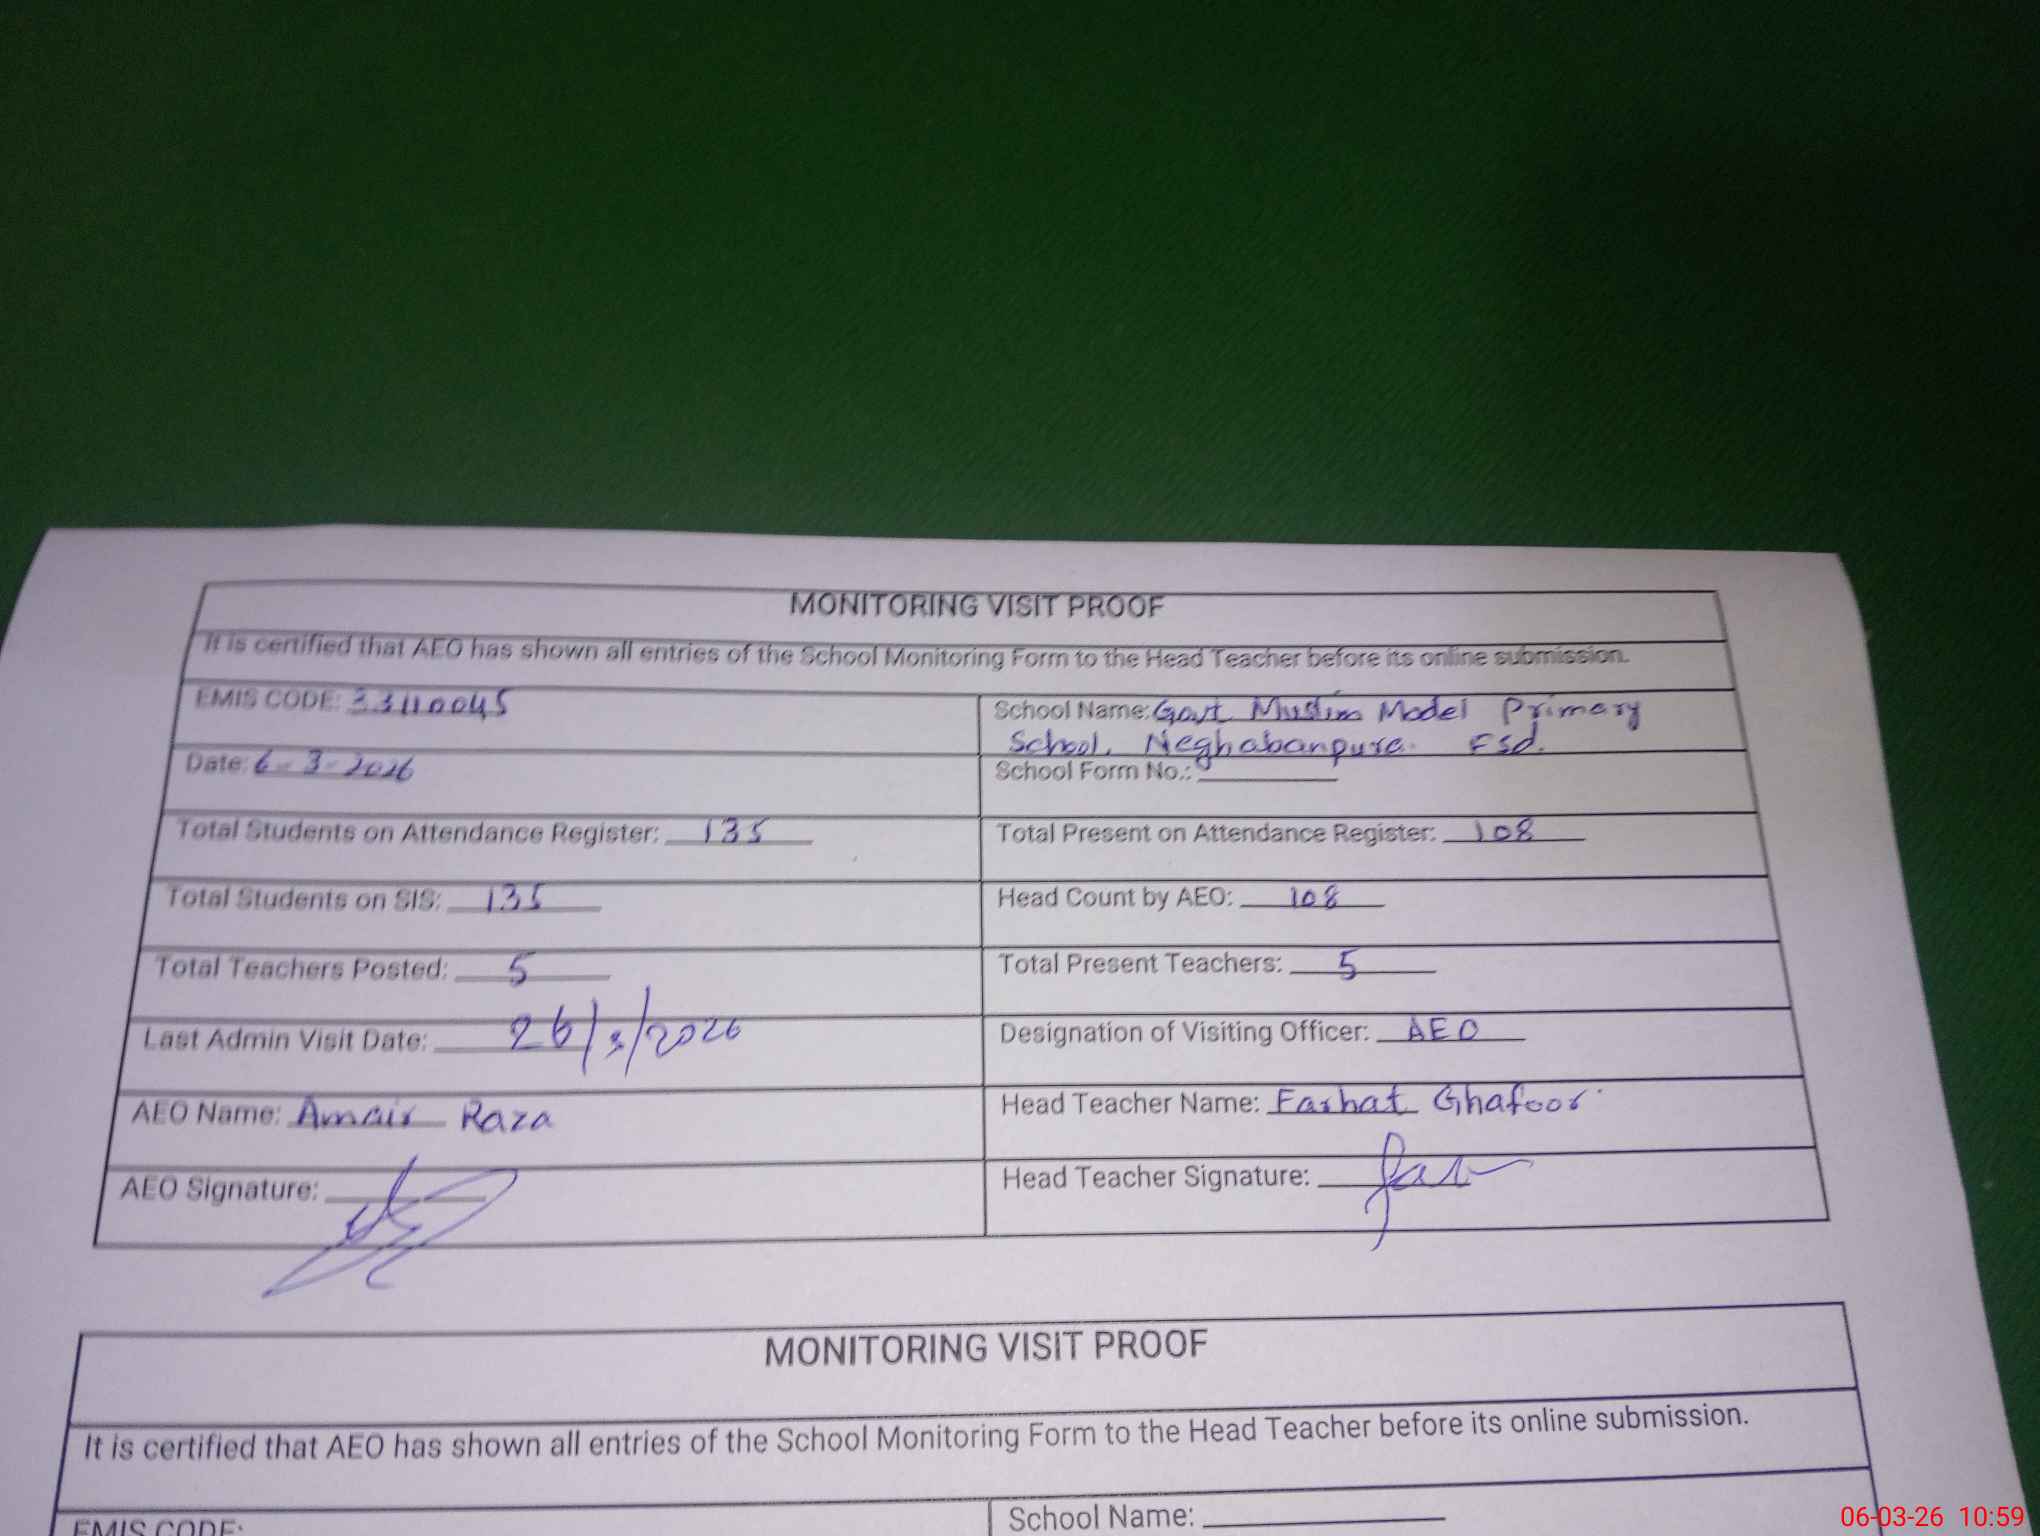 MONITORING VISIT PROOF
It is certified that AEO has shown all entries of the School Monitoring Form to the Head Teacher before its online submission.
EMIS CODE: 33110045
School Name: Govt Muslim Model Primary
School, Neghabanpura. Fsd.
Date: 6-3-2026
School Form No.:
Total Students on Attendance Register: 135
Total Present on Attendance Register: 108
Total Students on SIS: 135
Head Count by AEO: 108
Total Teachers Posted: 5
Total Present Teachers: 5
Last Admin Visit Date: 26/3/2026
Designation of Visiting Officer: AEO
AEO Name: Amair Raza
Head Teacher Name: Farhat Ghafoor
AEO Signature:
Head Teacher Signature:
MONITORING VISIT PROOF
It is certified that AEO has shown all entries of the School Monitoring Form to the Head Teacher before its online submission.
EMIS CODE:
School Name:
06-03-26 10:59